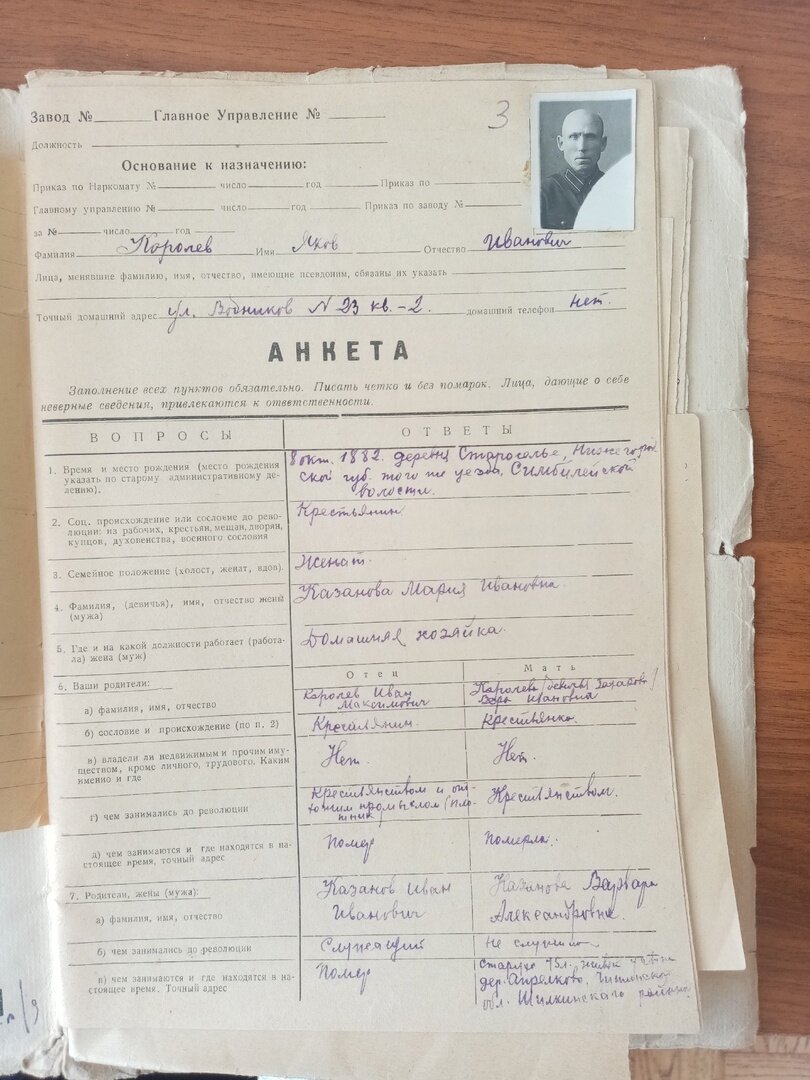 3
Завод № Главное Управление №
Должность
Основание к назначению:
Приказ по Наркомату № число год Приказ по
Главному управлению № число год Приказ по заводу №
за № число год
Фамилия Королев Имя Яков Отчество Иванович
Лица, менявшие фамилию, имя, отчество, имеющие псевдоним, обязаны их указать
Точный домашний адрес ул. Водников N 23 кв.-2. домашний телефон нет.
АНКЕТА
Заполнение всех пунктов обязательно. Писать четко и без помарок. Лица, дающие о себе
неверные сведения, привлекаются к ответственности.
ВОПРОСЫ ОТВЕТЫ
1. Время и место рождения (место рождения
указать по старому административному де-
лению).
8 окт. 1882. деревня Староселье, Нижегород
ской губ. того же уезда Симбилейской
волости.
2. Соц. происхождение или сословие до рево-
люции: из рабочих, крестьян, мещан, дворян,
купцов, духовенства, военного сословия
Крестьянин.
3. Семейное положение (холост, женат, вдов).
Женат.
4. Фамилия, (девичья), имя, отчество жены
(мужа)
Казанова Мария Ивановна.
5. Где и на какой должности работает (работа-
ла) жена (муж)
Домашняя хозяйка.
6. Ваши родители:
Отец Мать
а) фамилия, имя, отчество
Королев Иван
Максимович
Ивановна
б) сословие и происхождение (по п. 2)
Крестьянин. Крестьянка.
в) владели ли недвижимым и прочим иму-
ществом, кроме личного, трудового. Каким
именно и где
Нет. Нет.
г) чем занимались до революции
Крестьянством и от-
хожим промыслом (пло-
тник)
Крестьянством.
д) чем занимаются и где находятся в на-
стоящее время, точный адрес
Помер Померла.
7. Родители, жены (мужа):
а) фамилия, имя, отчество
Казанов Иван
Иванович
Казанова Варвара
Александровна.
б) чем занимались до революции
Служащий не служила
в) чем занимаются и где находятся в на-
стоящее время. Точный адрес
Помер
старуха 75л.
дер. Апрелково, Читинской
обл. Шилкинского района